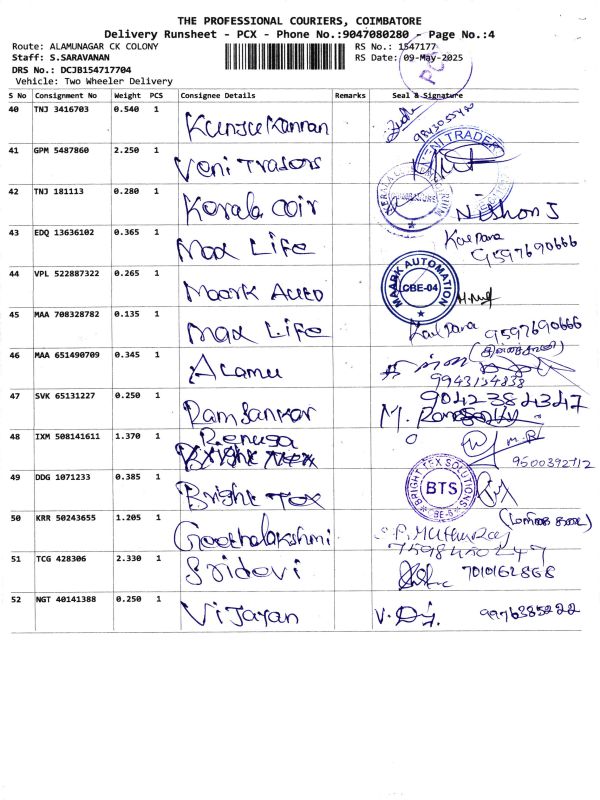 THE PROFESSIONAL COURIERS, COIMBATORE
Delivery Runsheet - PCX - Phone No.:9047080280 - Page No.:4
Route: ALAMUNAGAR CK COLONY RS No.: 1547177
Staff: S.SARAVANAN RS Date: 09-May-2025
DRS No.: DCJB154717704
Vehicle: Two Wheeler Delivery
S No Consignment No Weight PCS Consignee Details Remarks Seal & Signature
40 TNJ 3416703 0.540 1 Kunju Kannan 9843055420
41 GPM 5487860 2.250 1 Veni Tradors VENI TRADER
42 TNJ 181113 0.280 1 Korala coir Nishon J
43 EDQ 13636102 0.365 1 Max Life Kalpana 9597690666
44 VPL 522887322 0.265 1 Maark Auto MAARK AUTOMATION CBE-04
45 MAA 708328782 0.135 1 Max Life Kalpana 9597690666
46 MAA 651490709 0.345 1 Alamu 9943154838
47 SVK 65131227 0.250 1 Ramsankar M. 9042384347
48 IXM 508141611 1.370 1 Renusa M.R 9500392712
49 DDG 1071233 0.385 1 Bright Tex BRIGHT TEX SOLUTIONS BTS
50 KRR 50243655 1.205 1 Geethalakshmi P. Muthuraj 7598450247
51 TCG 428306 2.330 1 Sridevi 7010162868
52 NGT 40141388 0.250 1 Vijayan 9976385222